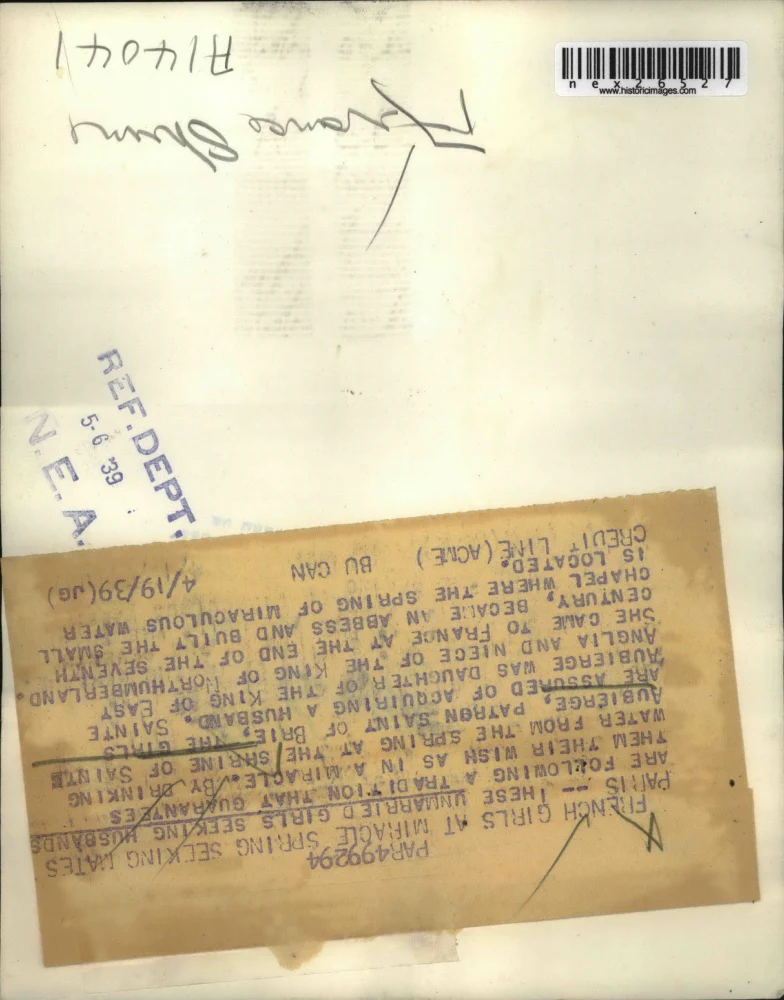 A14041
France Shrines
n e x 2 6 5 2 7
www.historicimages.com
REF. DEPT.
5-6 39
N. E. A.
PAR499294
FRENCH GIRLS AT MIRACLE SPRING SEEKING MATES
PARIS -- THESE UNMARRIED GIRLS SEEKING HUSBANDS
ARE FOLLOWING A TRADITION THAT GUARANTEES
THEM THEIR WISH AS IN A MIRACLE. BY DRINKING
WATER FROM THE SPRING AT THE SHRINE OF SAINTE
AUBIERGE, PATRON SAINT OF BRIE, THE GIRLS
ARE ASSURED OF ACQUIRING A HUSBAND. SAINTE
AUBIERGE WAS DAUGHTER OF THE KING OF EAST
ANGLIA AND NIECE OF THE KING OF NORTHUMBERLAND.
SHE CAME TO FRANCE AT THE END OF THE SEVENTH
CENTURY, BECAME AN ABBESS AND BUILT THE SMALL
CHAPEL WHERE THE SPRING OF MIRACULOUS WATER
IS LOCATED.
CREDIT LINE (ACME) BU CAN 4/19/39(JG)